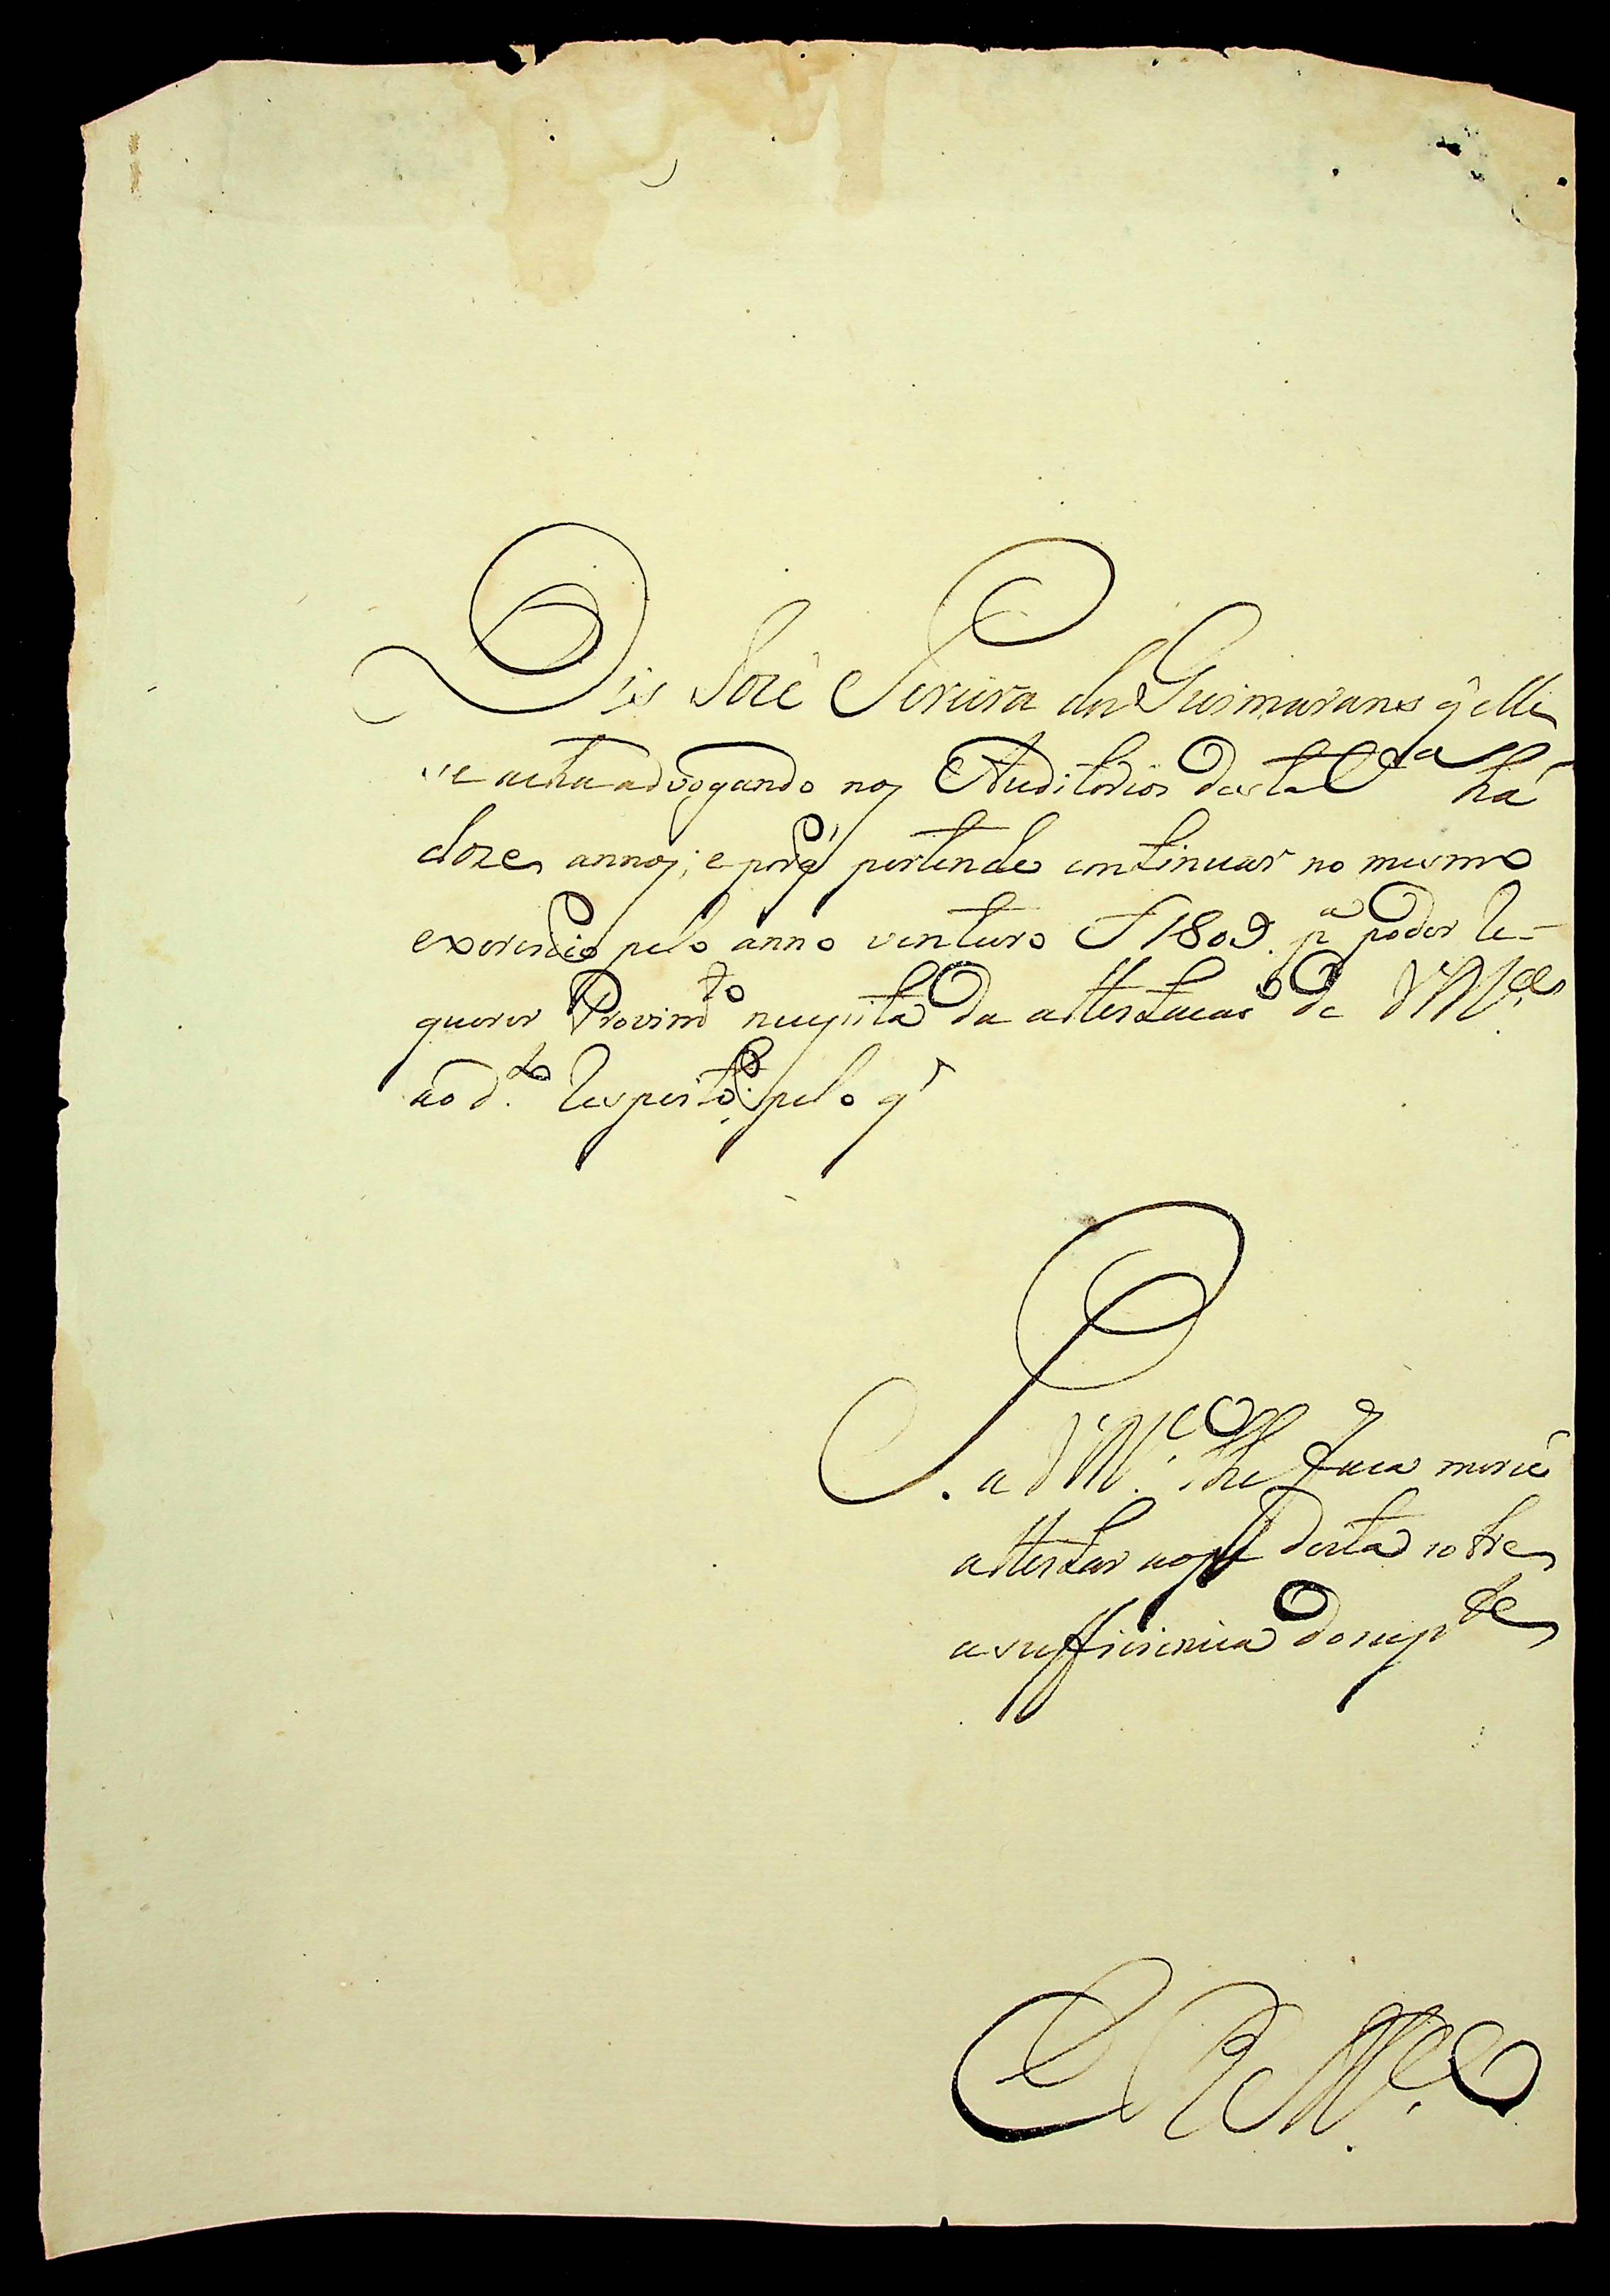 Dis Jozé Pereira de Guimaraens q̃ elle
se acha advogando nos Auditorios desta V.ª há
doze annos; e porq̃ pertende continuar no mesmo
exercicio pelo anno venturo d 1809. p.ª poder re-
querer Provim.to necessita da attestacaõ de VM.ces
ao d.to respeito; pelo q̃
P. a VM.ces lhe faca mercê
attestar ao pé desta sobre
a sufficiencia do sup.te
E R M.ce